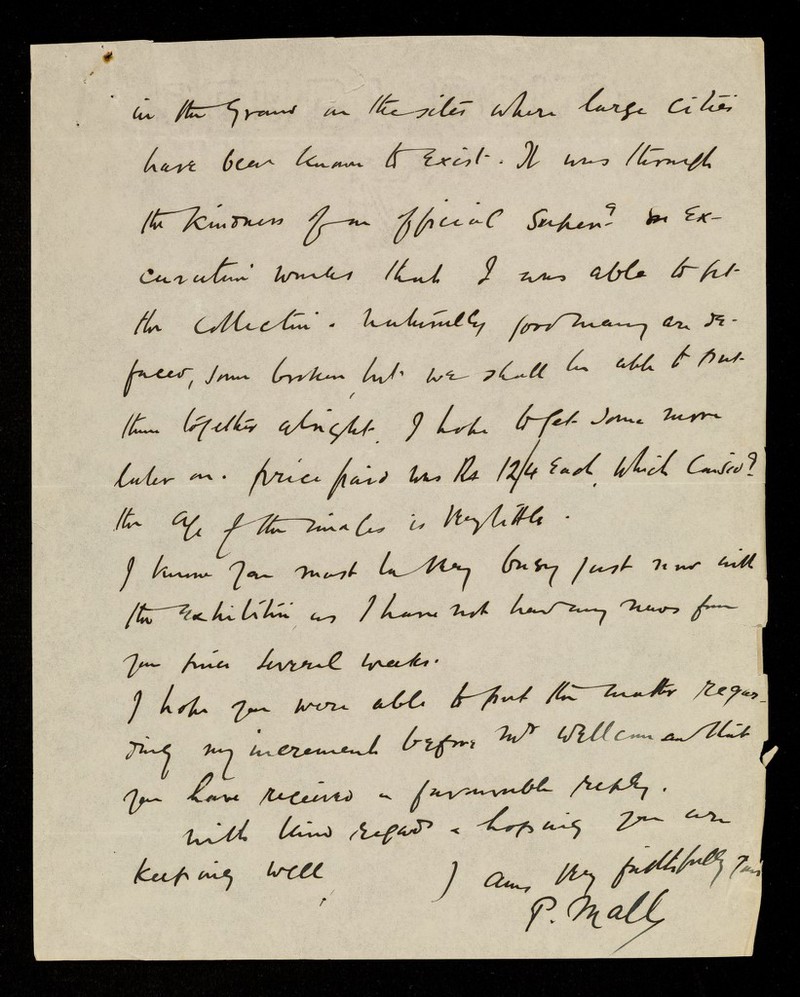 in the Ground on the sites where large Cities
have been known to Exist. It was through
the Kindness of an official Super.? in Ex-
cavation works that I was able to get
the Collection. Naturally good many are de-
faced, some broken, but we shall be able to put
them together alright. I hope to get some more
later on. Price paid was Rs 12/4 Each, which Consid?
the age of the images is very little.
I know you must be very busy just now with
the Exhibition, as I have not had any news from
you since several weeks.
I hope you were able to put the matter regar-
ding my increment before Mr Wellcome and that
you have received a favourable reply.
With kind regards & hoping you are
keeping well
I am Very faithfully Yours
P. Mall